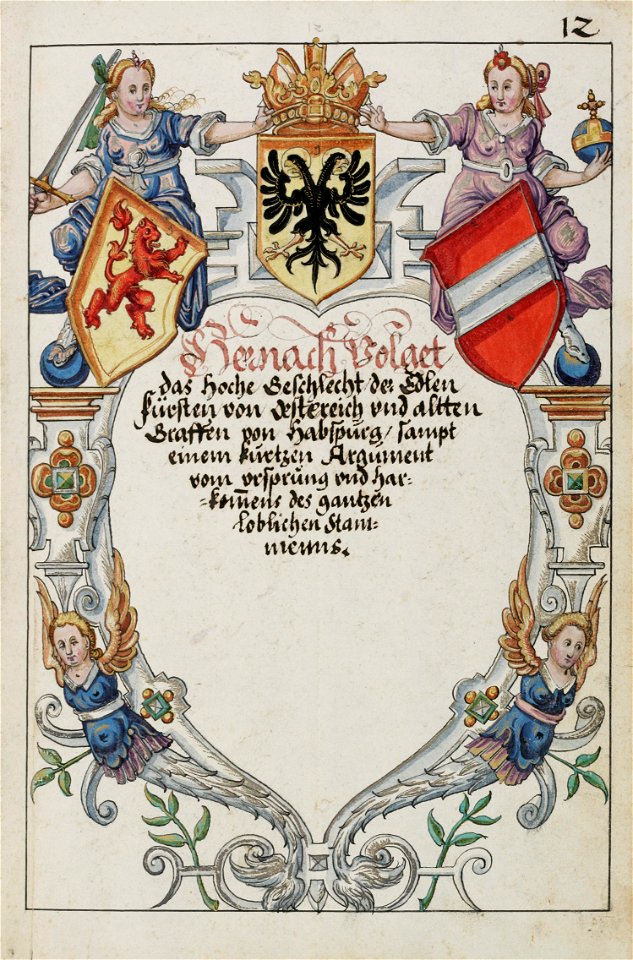 12
Hernach Volget
das Hoche Geschlecht der Edlen
Fürsten von Oestereich vnd altten
Graffen von Habspurg/ sampt
einem kurtzen Argument
vom vrsprung vnd har-
-kom̄ens des gantzen
loblichen Stam-
mens.